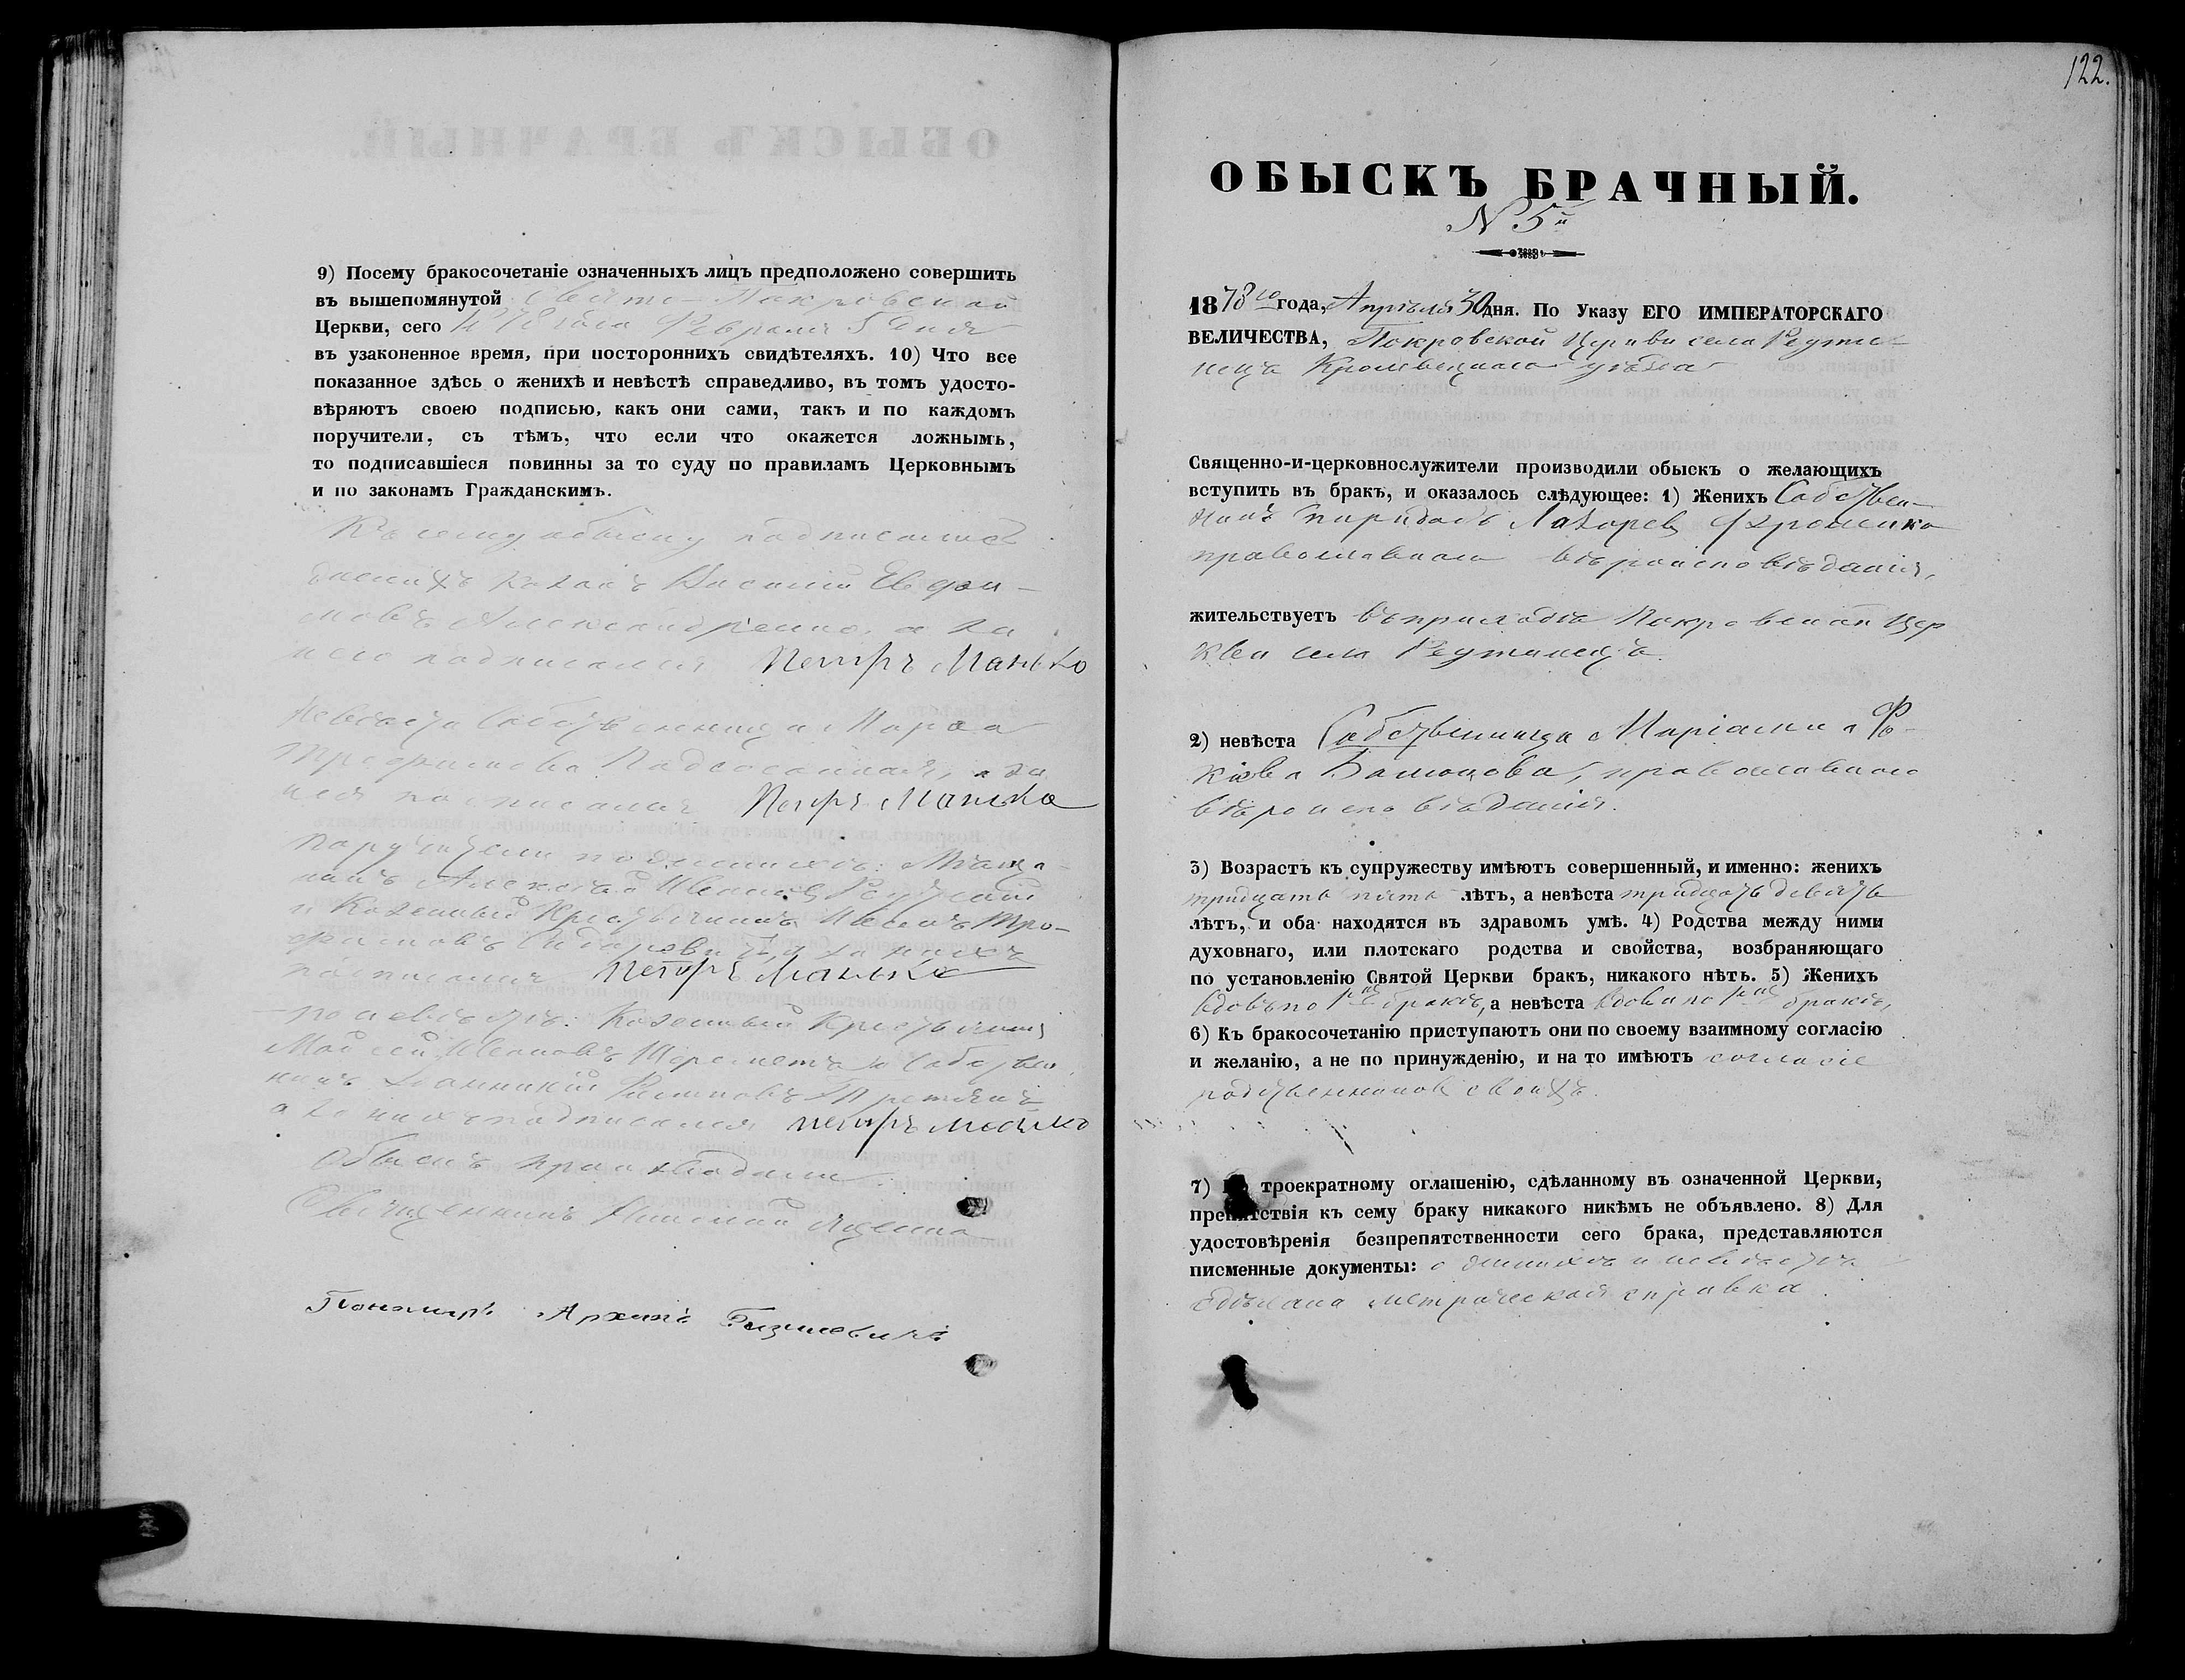 9) Посему бракосочетаніе означенныхъ лицъ предположено совершить
въ вышепомянутой Свято-Покровской
Церкви, сего 1878 года Февраля 5 дня
въ узаконенное время, при постороннихъ свидѣтеляхъ. 10) Что все
показанное здѣсь о женихѣ и невѣстѣ справедливо, въ томъ удосто-
вѣряютъ своею подписью, какъ они сами, такъ и по каждомъ
поручители, съ тѣмъ, что если что окажется ложнымъ,
то подписавшіеся повинны за то суду по правиламъ Церковнымъ
и по законамъ Гражданскимъ.
Къ сему обыску подписался
женихъ козакъ Василій Евфи-
мовъ Александренко, а за
него подписался Петръ Манько
Невѣста собственница Марфа
Трофимова, а за
нея подписался Петръ Манько
поручители по женихѣ: Мѣща-
нинъ Алексѣй Ивановъ
и Казенный Крестьянинъ Иванъ Тро-
фимовъ а за нихъ
подписался Петръ Манько
по невѣстѣ: Казенный Крестьянинъ
Моисей Ивановъ Шереметъ и Собствен
никъ
а за нихъ подписался Петръ Манько
Обыскъ производили
Священникъ Николай Яценко
Пономарь Архипъ
122.
ОБЫСКЪ БРАЧНЫЙ.
N 5й
1878го года, Апрѣля 30 дня. По Указу ЕГО ИМПЕРАТОРСКАГО
ВЕЛИЧЕСТВА, Покровской Церкви села Реути-
нецъ Кролевецкаго уѣзда
Священно-и-церковнослужители производили обыскъ о желающихъ
вступить въ бракъ, и оказалось слѣдующее: 1) Женихъ Собствен-
никъ Спиридонъ Лазорев Хроменко
православнаго вѣроисповѣданія,
жительствуетъ въ приходѣ Покровской Цер
кви села Реутинецъ.
2) невѣста Собственница Маріанна Фо-
кіева, православнаго
вѣроисповѣданія.
3) Возрастъ къ супружеству имѣютъ совершенный, и именно: женихъ
тридцать пять лѣтъ, а невѣста тридцать девять
лѣтъ, и оба находятся въ здравомъ умѣ. 4) Родства между ними
духовнаго, или плотскаго родства и свойства, возбраняющаго
по установленію Святой Церкви бракъ, никакого нѣтъ. 5) Женихъ
вдовъ по 1мъ бракѣ, а невѣста вдова по 1мъ бракѣ,
6) Къ бракосочетанію приступаютъ они по своему взаимному согласію
и желанію, а не по принужденію, и на то имѣютъ согласіе
родственниковъ своихъ.
7) троекратному оглашенію, сдѣланному въ означенной Церкви,
препятствія къ сему браку никакого никѣмъ не объявлено. 8) Для
удостовѣренія безпрепятственности сего брака, представляются
писменные документы: о женихѣ и невѣстѣ
сдѣлана метрическая справка.